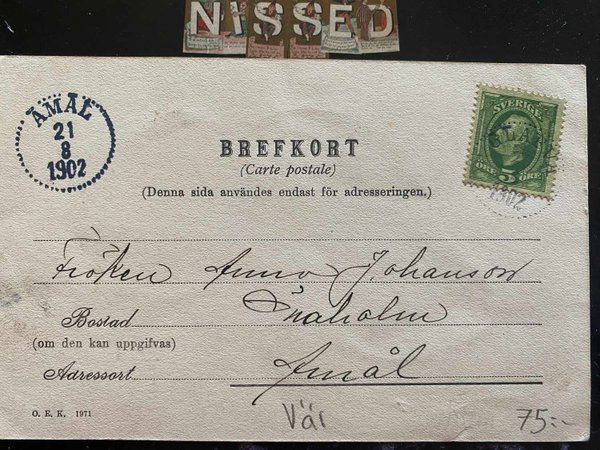 NISSED
ÅMÅL
21
8
1902
SVERIGE
ÖRE 5 ÖRE
1902
BREFKORT
(Carte postale)
(Denna sida användes endast för adresseringen.)
Fröken Anna Johanson
Bostad
(om den kan uppgifvas)
Adressort Åmål
O. E. K. 1971
Vär
75:-